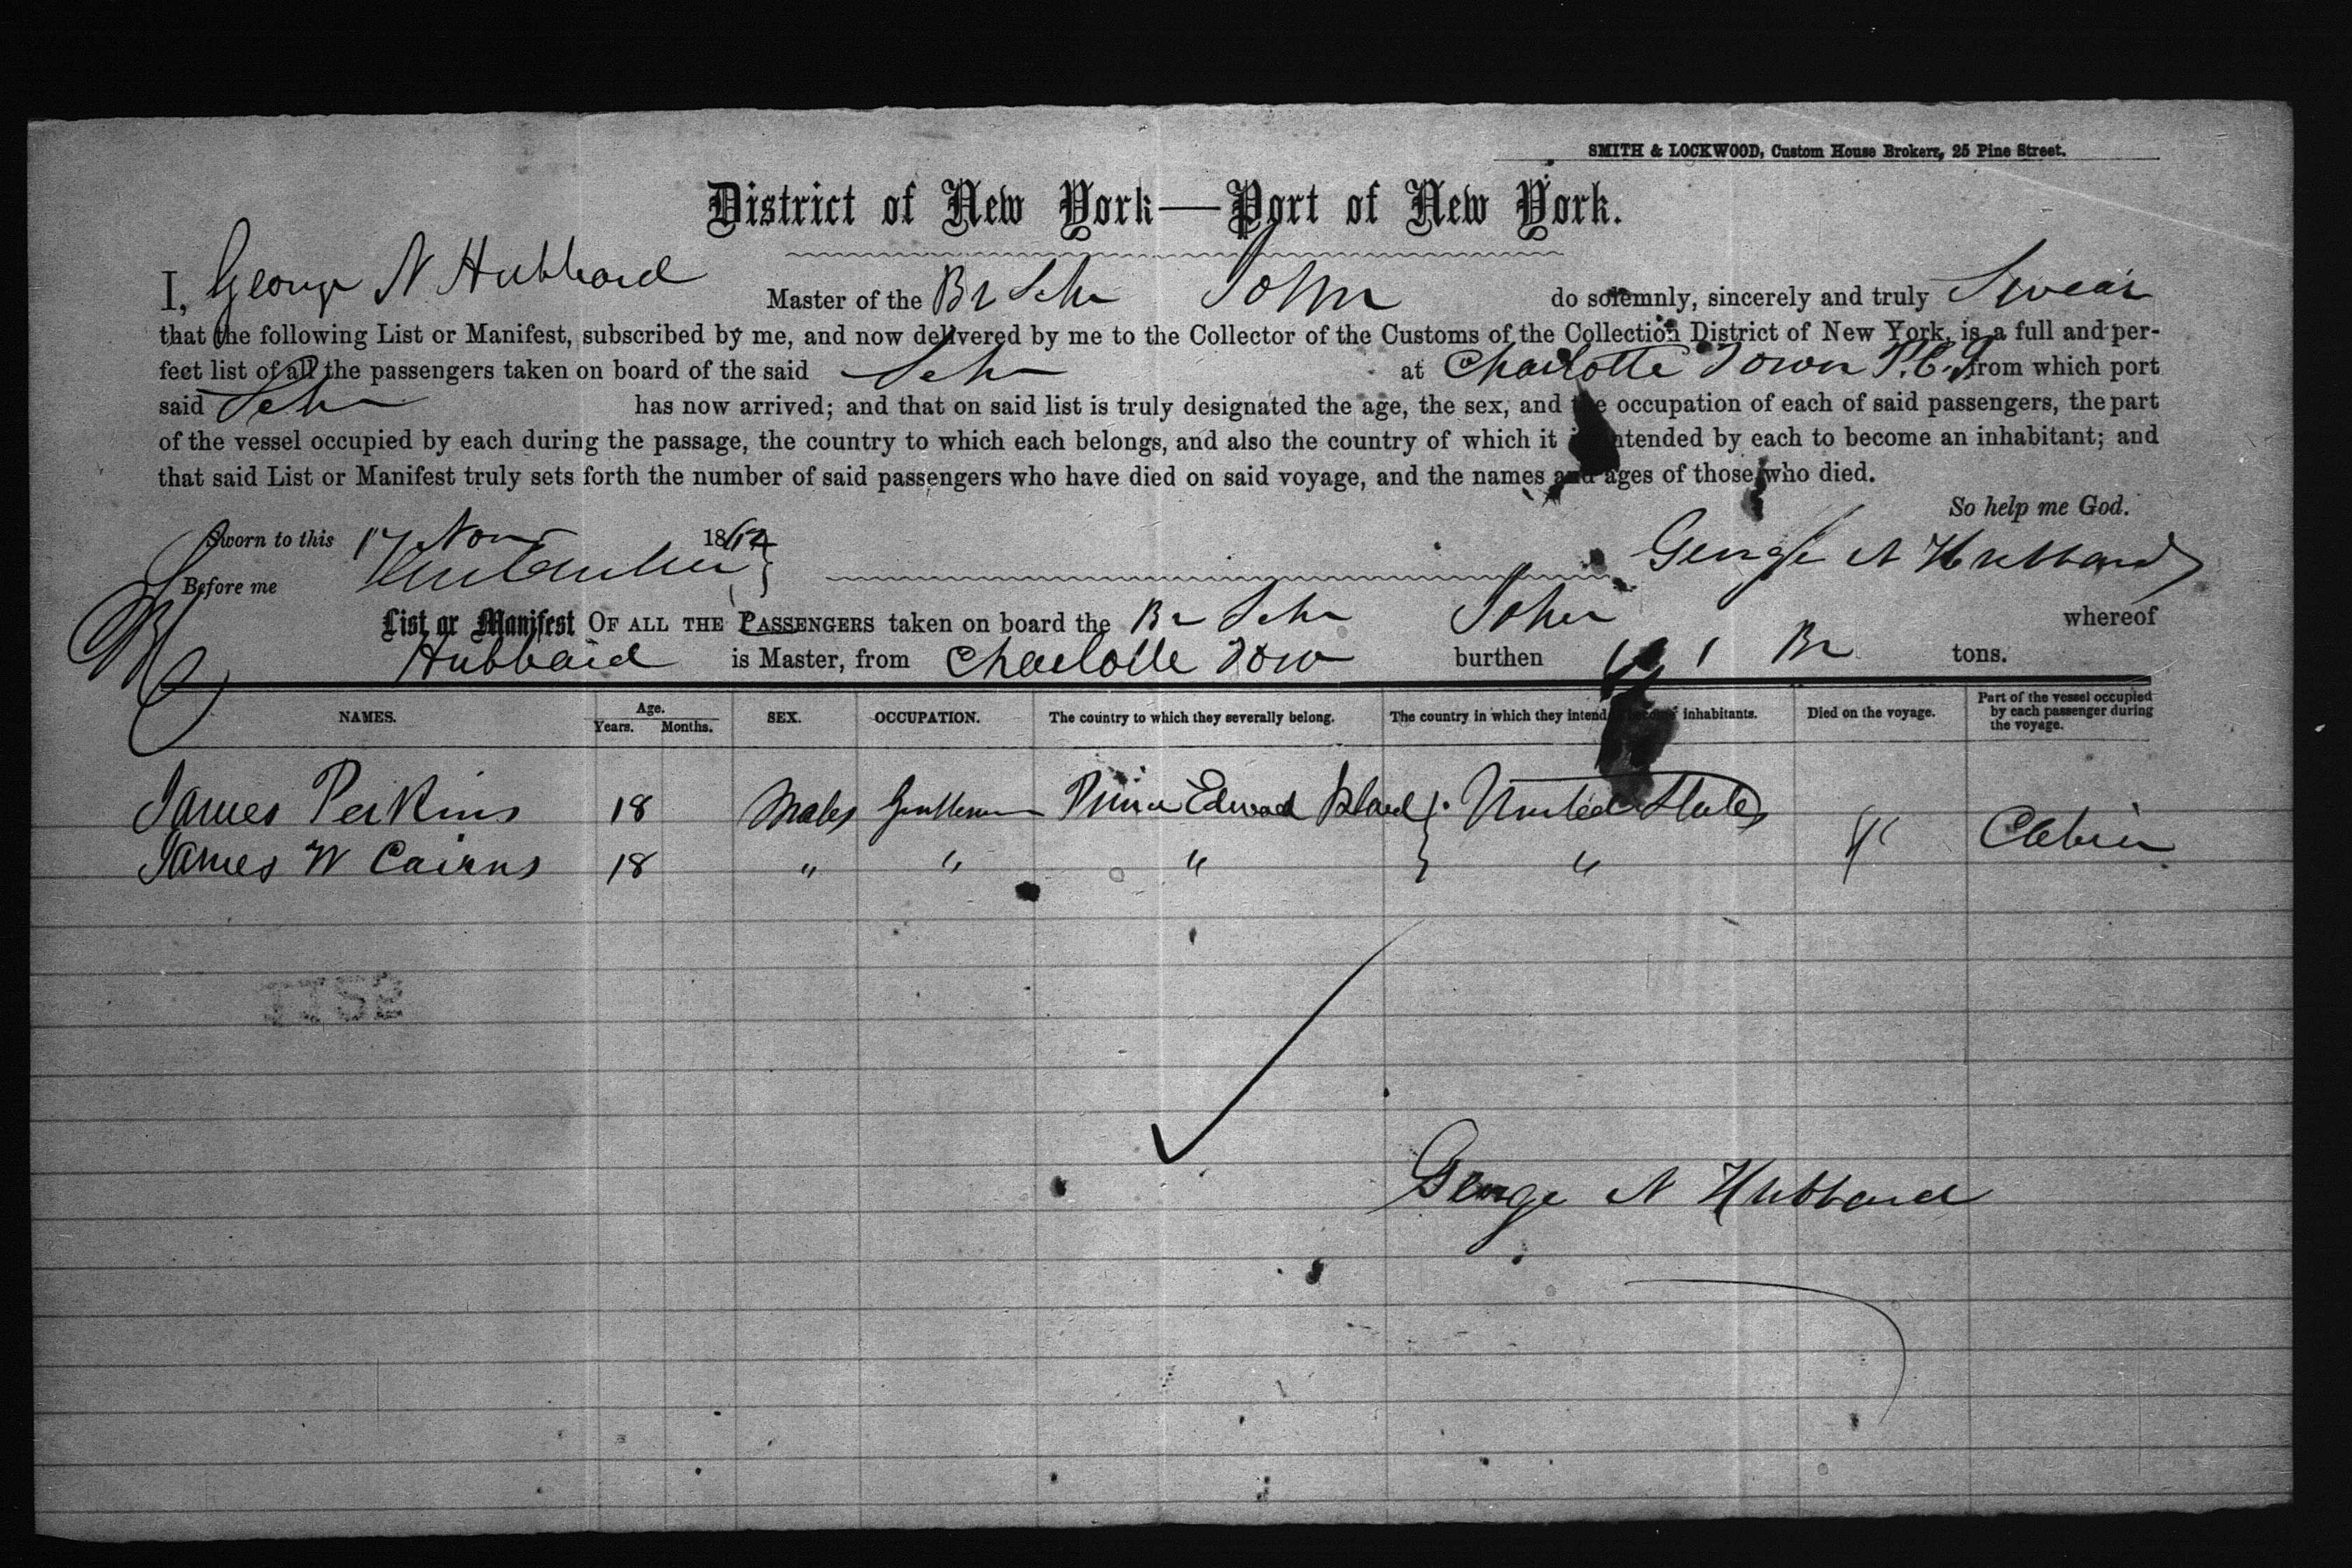 SMITH & LOCKWOOD, Custom House Brokers, 25 Pine Street.
District of New York—Port of New York.
I, George N Hubbard Master of the Br Schr John do solemnly, sincerely and truly Swear
that the following List or Manifest, subscribed by me, and now delivered by me to the Collector of the Customs of the Collection District of New York, is a full and per-
fect list of all the passengers taken on board of the said Schr at Charlotte Town P.E.I. from which port
said Schr has now arrived; and that on said list is truly designated the age, the sex, and the occupation of each of said passengers, the part
of the vessel occupied by each during the passage, the country to which each belongs, and also the country of which it is intended by each to become an inhabitant; and
that said List or Manifest truly sets forth the number of said passengers who have died on said voyage, and the names and ages of those who died.
So help me God.
Sworn to this 17 Nov 186
Before me
George N Hubbard
List or Manifest OF ALL THE PASSENGERS taken on board the Br Schr John whereof
Hubbard is Master, from Charlotte Tow burthen Br tons.
NAMES. Age. Years. Months. SEX. OCCUPATION. The country to which they severally belong. The country in which they intend to become inhabitants. Died on the voyage. Part of the vessel occupied by each passenger during the voyage.
James Perkins 18 Males Gentlemen Prince Edward Island } United States Cabin
James W Cairns 18 " " " "
George N Hubbard